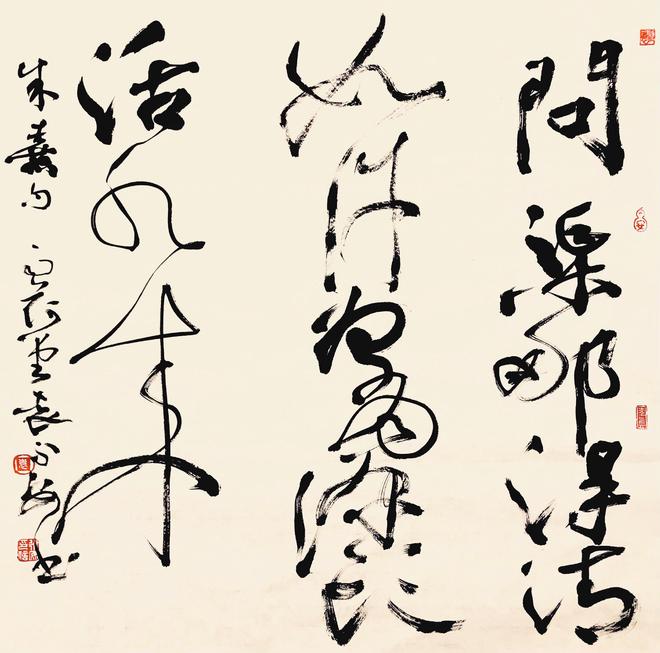 問渠那得清
如許為有源頭
活水來
朱熹句